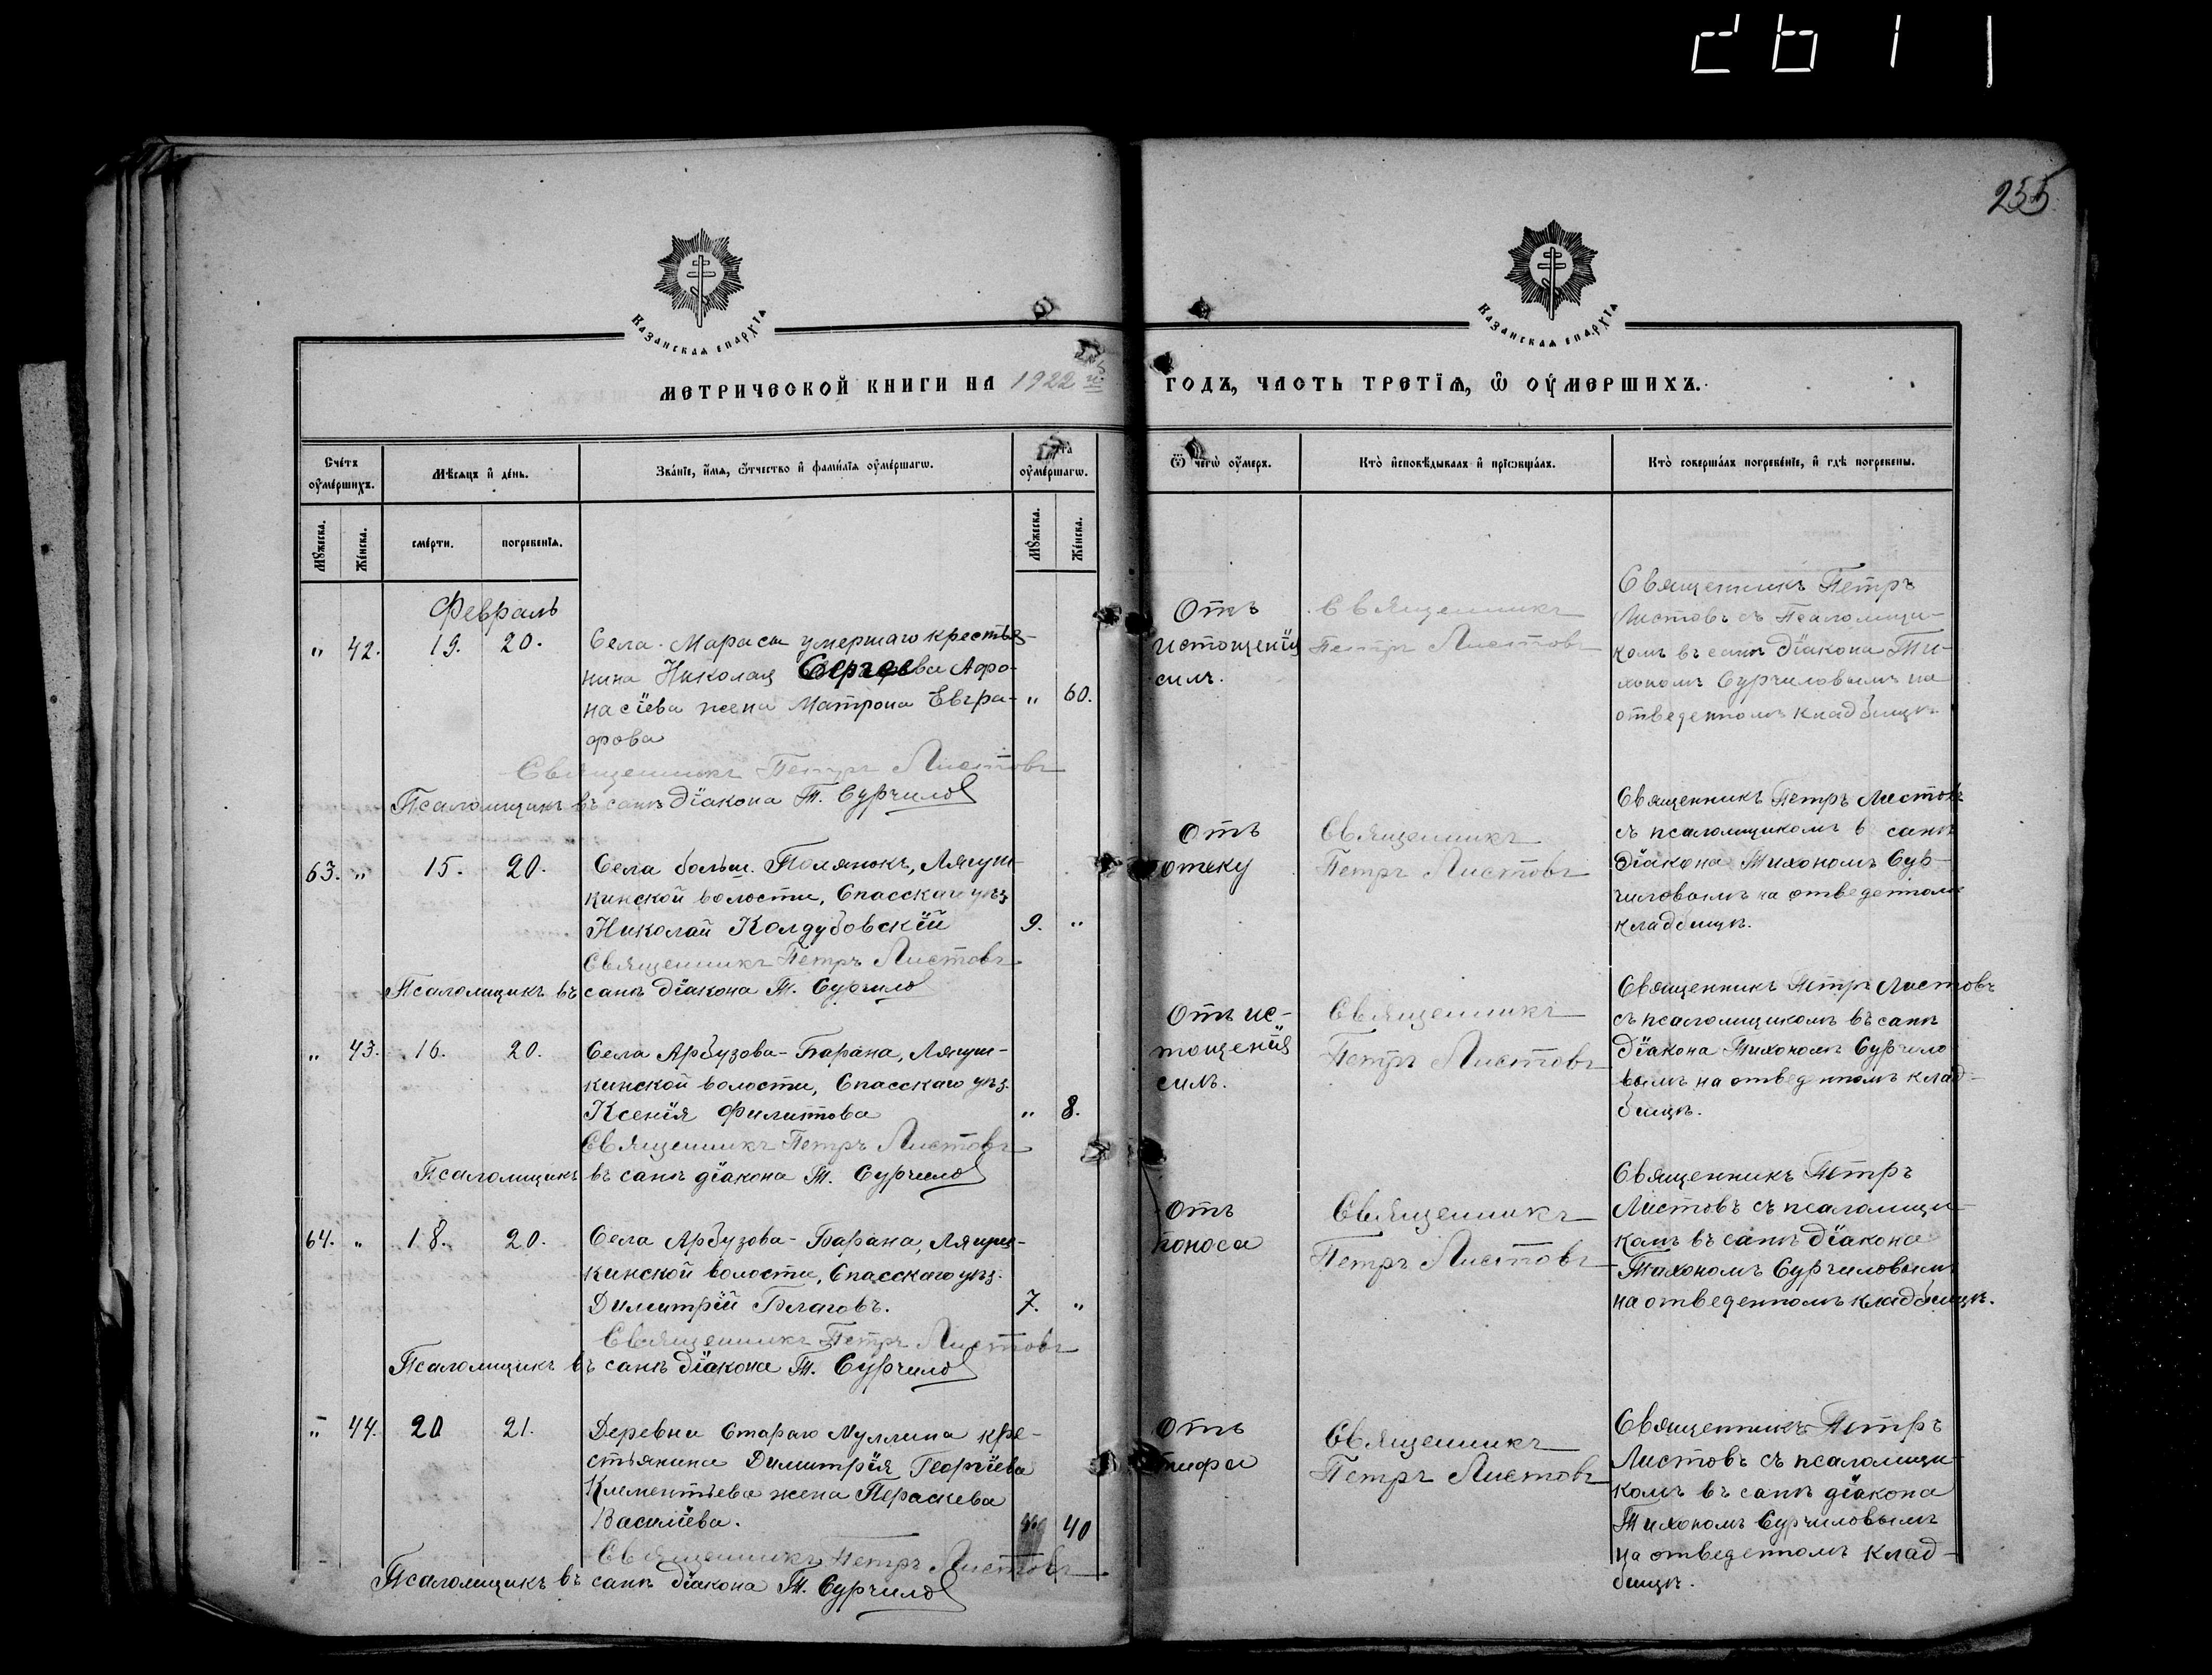 255
Казанская епархїа
Казанская епархїа
МЕТРИЧЕСКОЙ КНИГИ НА 1922 й
ГОДЪ, ЧАСТЬ ТРЕТІѦ, Ѡ ОУМЕРШИХЪ.
Счетъ оумершихъ.
Мѣсяцъ и день.
Званіе, имя, отчество и фамилія оумершагѡ.
Лѣта оумершагѡ.
Ѿ чегѡ оумеръ.
Кто исповѣдывалъ и пріѡбщалъ.
Кто совершалъ погребеніе, и гдѣ погребены.
Мужеска.
Женска.
смерти.
погребенія.
Мужеска.
Женска.
Февраль
„ 42. 19. 20.
Села Мараси умершаго крестья-
нина Николая Сергеева Афо-
насіева жена Матрона Евгра-
фова
„ 60.
Отъ
истощенія
силъ.
Священникъ
Петръ Листовъ
Священникъ Петръ
Листовъ съ Псаломщи-
комъ въ санѣ Діакона Ти-
хономъ Сурчиловымъ на
отведенномъ кладбищѣ
Священникъ Петръ Листовъ
Псаломщикъ въ санѣ діакона Т. Сурчилов
63. „ 15. 20.
Села больш. Полянокъ, Лягуш-
кинской волости, Спасскаго уѣз
Николай Колдубовскій
9. „
Отъ
отеку
Священникъ
Петръ Листовъ
Священникъ Петръ Листовъ
съ псаломщикомъ в санѣ
діакона Тихономъ Сур-
чиловымъ на отведенномъ
кладбищѣ.
Священникъ Петръ Листовъ
Псаломщикъ въ санѣ діакона Т. Сурчилов
„ 43. 16. 20.
Села Арбузова-Барана, Лягуш-
кинской волости, Спасскаго уѣз.
Ксенія Филитова
„ 8.
Отъ ис-
тощенія
силъ.
Священникъ
Петръ Листовъ
Священникъ Петръ Листовъ
съ псаломщикомъ въ санѣ
діакона Тихономъ Сурчило
вымъ на отведенномъ клад-
бищѣ.
Священникъ Петръ Листовъ
Псаломщикъ въ санѣ діакона Т. Сурчилов
64. „ 18. 20.
Села Арбузова-Барана, Лягуш-
кинской волости, Спасскаго уѣз.
Димитрій Благовъ.
7. „
Отъ
поноса
Священникъ
Петръ Листовъ
Священникъ Петръ
Листовъ съ псаломщи-
комъ въ санѣ діакона
Тихономъ Сурчиловымъ
на отведенномъ кладбищѣ.
Священникъ Петръ Листовъ
Псаломщикъ въ санѣ діакона Т. Сурчилов
„ 44. 20 21.
Деревни Стараго Муллина кре-
стьянина Димитрія Георгіева
Климентьева жена Параскева
Василіева.
40
Отъ
тифа
Священникъ
Петръ Листовъ
Священникъ Петръ
Листовъ съ псаломщи-
комъ въ санѣ діакона
Тихономъ Сурчиловымъ
на отведенномъ клад-
бищѣ.
Священникъ Петръ Листовъ
Псаломщикъ въ санѣ діакона Т. Сурчилов